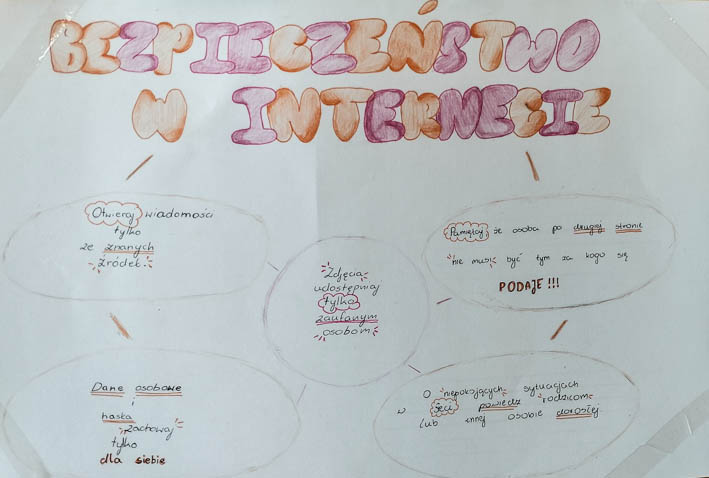 BEZPIECZEŃSTWO
W INTERNECIE
Otwieraj wiadomości
tylko
ze znanych
źródeł.
Pamiętaj że osoba po drugiej stronie
nie musi być tym za kogo się
PODAJE!!!
Zdjęcia
udostępniaj
tylko
zaufanym
osobom
Dane osobowe
i
hasła
zachowaj
tylko
dla siebie
O niepokojących sytuacjach
w sieci powiedz rodzicom
lub innej osobie dorosłej